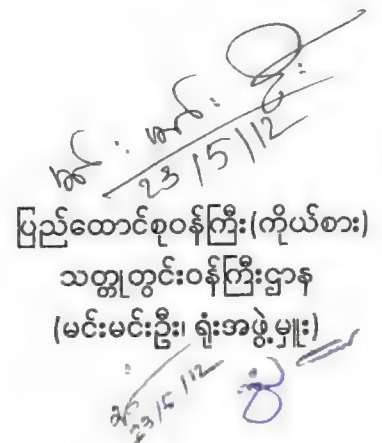 23/5/12
ပြည်ထောင်စုဝန်ကြီး(ကိုယ်စား)
သတ္တုတွင်းဝန်ကြီးဌာန
(မင်းမင်းဦး၊ ရုံးအဖွဲ့မှူး)
23/5/12